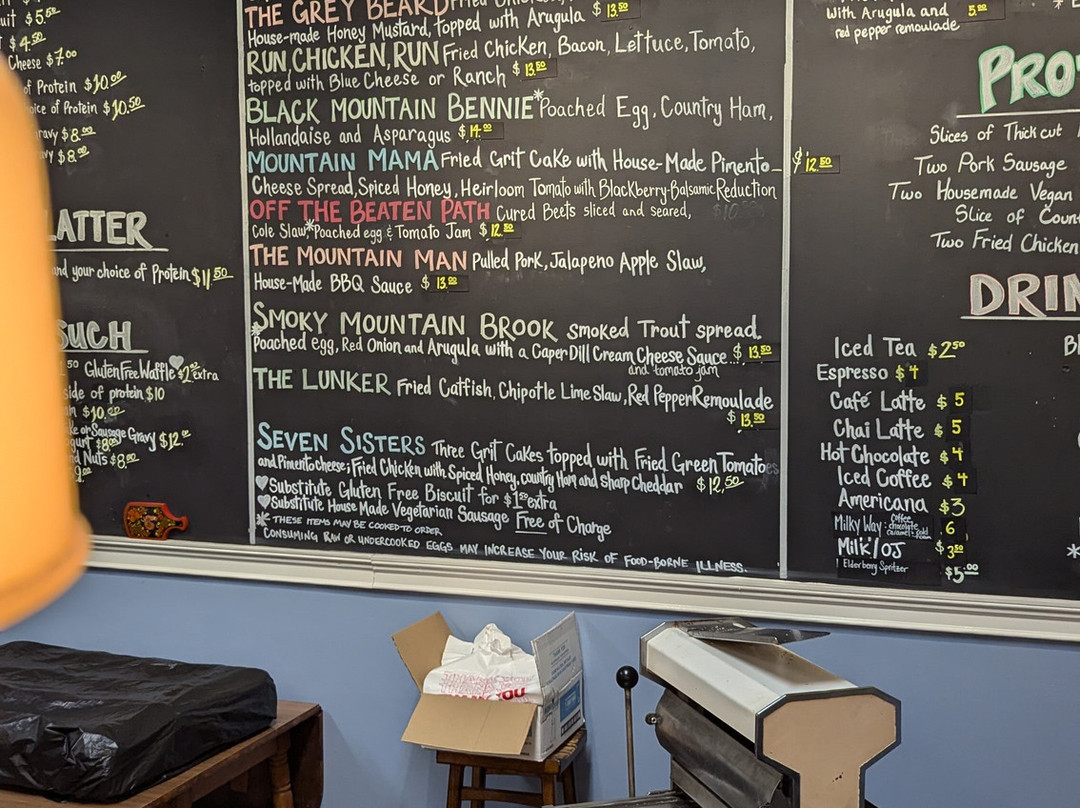 uit $5.50
$4.50
Cheese $7.00
of Protein $10.00
oice of Protein $10.50
ravy $8.00
vy $8.00
LATTER
and your choice of Protein $11.50
SUCH
50 Gluten Free Waffle ♥ $2.00 extra
side of protein $10
$10.00
ke or Sausage Gravy $12.00
gurt $8.00
d Nuts $8.00
THE GREY BEARD Fried
House-made Honey Mustard, topped with Arugula $13.50
RUN, CHICKEN, RUN Fried Chicken, Bacon, Lettuce, Tomato,
topped with Blue Cheese or Ranch $13.50
BLACK MOUNTAIN BENNIE *Poached Egg, Country Ham,
Hollandaise and Asparagus $14.00
MOUNTAIN MAMA Fried Grit Cake with House-Made Pimento- $12.50
Cheese Spread, Spiced Honey, Heirloom Tomato with Blackberry-Balsamic Reduction
OFF THE BEATEN PATH Cured Beets sliced and seared,
Cole Slaw *Poached egg & Tomato Jam $12.50
THE MOUNTAIN MAN Pulled Pork, Jalapeno Apple Slaw,
House-Made BBQ Sauce $13.00
SMOKY MOUNTAIN BROOK Smoked Trout spread.
*Poached egg, Red Onion and Arugula with a Caper Dill Cream Cheese Sauce.. $13.50
and tomato jam
THE LUNKER Fried Catfish, Chipotle Lime Slaw, Red Pepper Remoulade
$13.50
SEVEN SISTERS Three Grit Cakes topped with Fried Green Tomatoes
and Pimento cheese; Fried Chicken with Spiced Honey, country Ham and Sharp Cheddar $12.50
♥Substitute Gluten Free Biscuit for $1.50 extra
♥Substitute House Made Vegetarian Sausage Free of Charge
* THESE ITEMS MAY BE COOKED TO ORDER
CONSUMING RAW OR UNDERCOOKED EGGS MAY INCREASE YOUR RISK OF FOOD-BORNE ILLNESS.
with Arugula and 5.00
red pepper remoulade
PRO
Slices of Thick cut
Two Pork Sausage
Two Housemade Vegan
Slice of Coun
Two Fried Chicken
DRIN
Iced Tea $2.50
Espresso $4
Café Latte $5
Chai Latte $5
Hot Chocolate $4
Iced Coffee $4
Americana $3
Milky Way: coffee, chocolate 6
Milk/OJ $3.50
Elderberry Spritzer $5.00
YOU